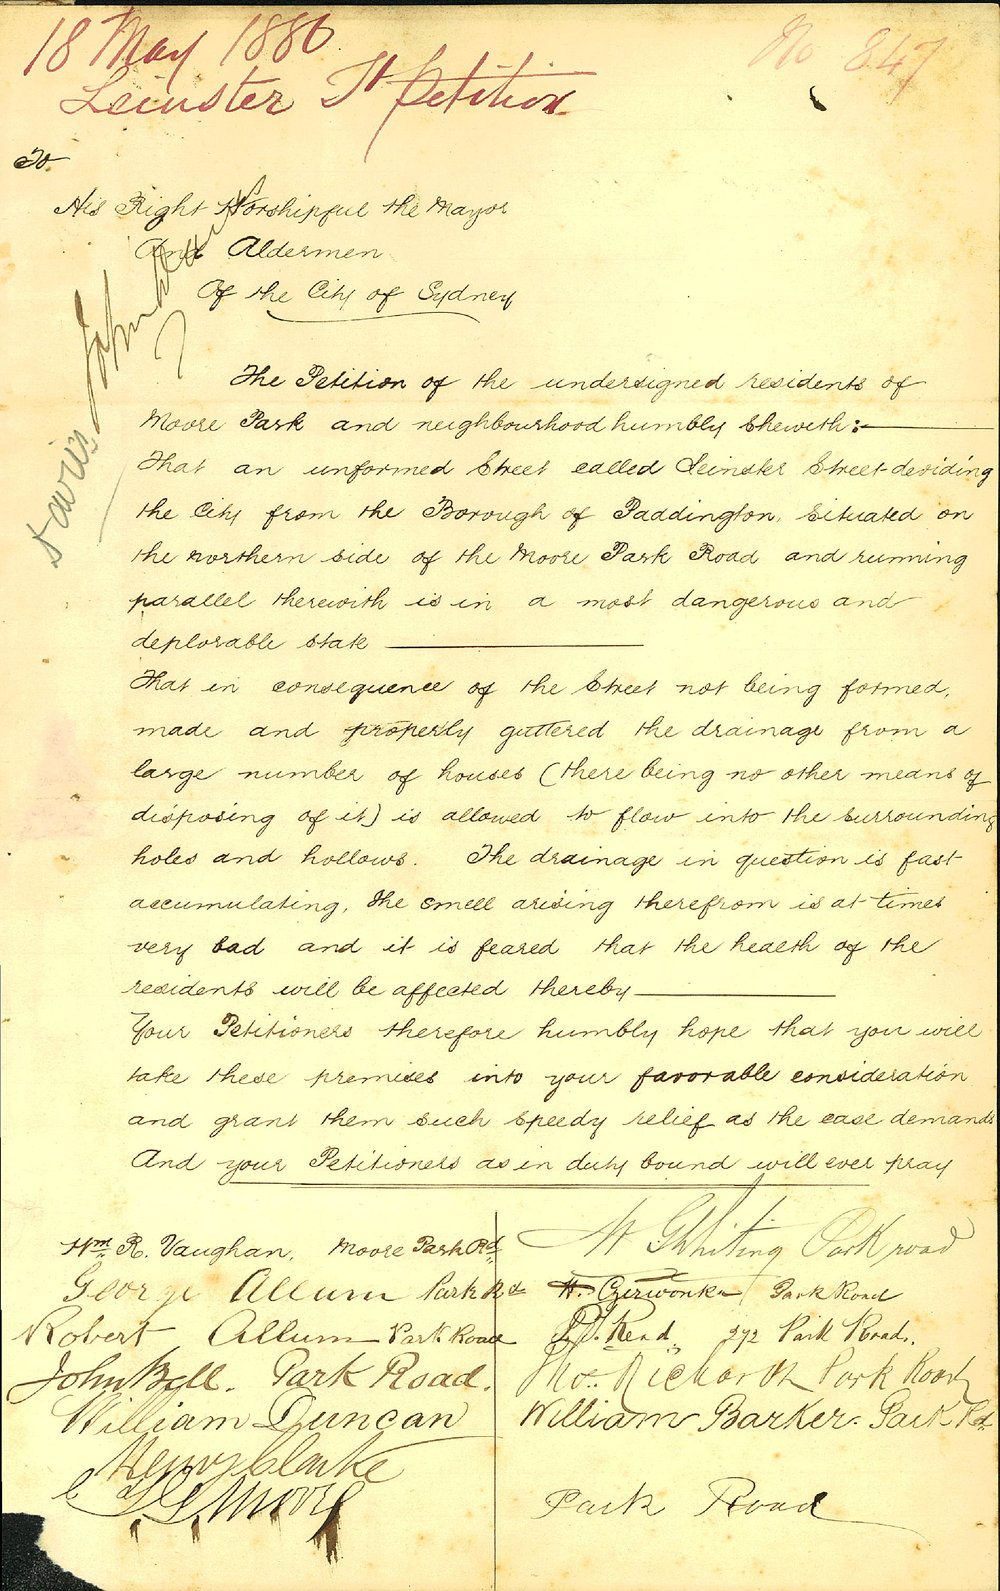 18 May 1886
No 847
Leinster St Petition
To
His Right Worshipful the Mayor
And Aldermen
Of the City of Sydney
John
Davies
The Petition of the undersigned residents of
Moore Park and neighbourhood humbly sheweth:
That an unformed Street called Leinster Street deviding
the City from the Borough of Paddington, situated on
the northern side of the Moore Park Road and running
parallel therewith is in a most dangerous and
deplorable state
That in consequence of the Street not being formed,
made and properly guttered the drainage from a
large number of houses (there being no other means of
disposing of it) is allowed to flow into the surrounding
holes and hollows. The drainage in question is fast
accumulating, the smell arising therefrom is at times
very bad and it is feared that the health of the
residents will be affected thereby
Your Petitioners therefore humbly hope that you will
take these premises into your favorable consideration
and grant them such speedy relief as the case demands
And your Petitioners as in duty bound will ever pray
Wm R. Vaughan, Moore Park Rd
George Allum Park Rd
Robert Allum Park Road
John Bell. Park Road.
William Duncan
Henry Clarke
Moore
W G Whiting Park road
H. Czerwonka Park Road
Read, 272 Park Road.
Thos. Richards Park Road
William Barker. Park Rd
Park Road